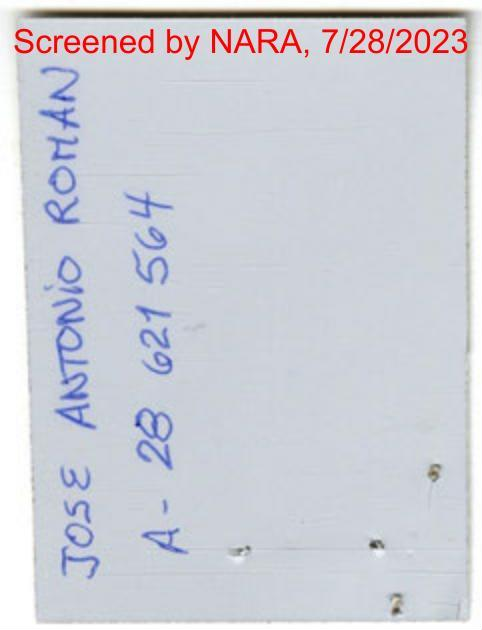 Screened by NARA, 7/28/2023
JOSE ANTONIO ROMAN
A- 28 621 564